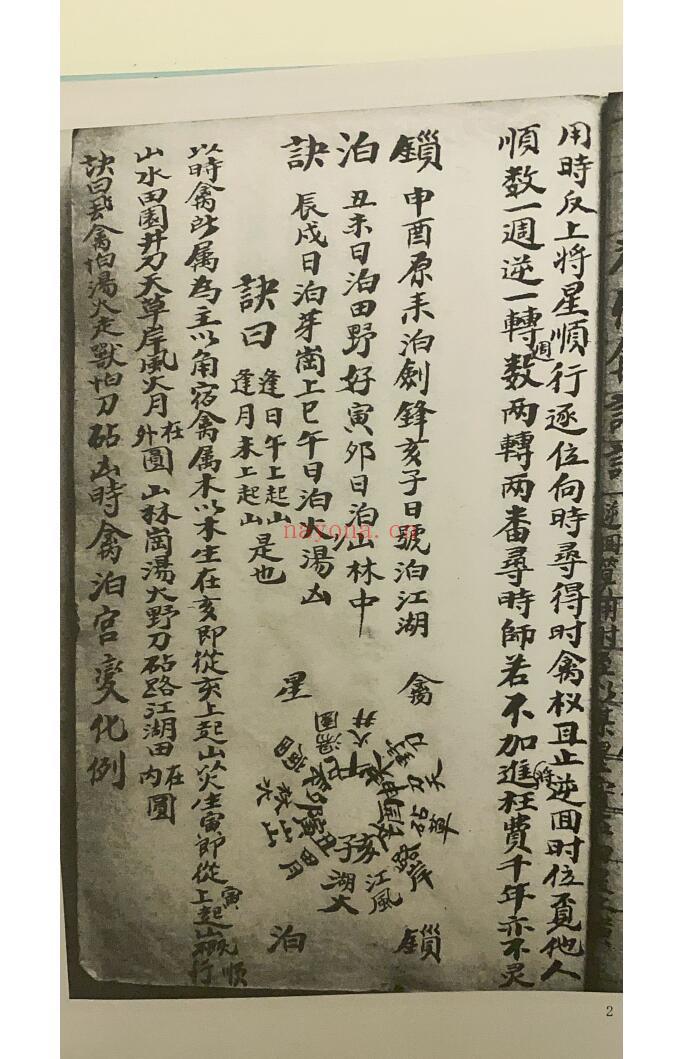 用時反上將星順行逐位向時尋得时禽权且止逆回时位覓他人
順数一週逆一轉週数两轉两畨尋時師若不加進将枉費千年亦不灵
鎖泊訣
申酉原來泊劍鋒亥子日號泊江湖
丑未日泊田野好寅卯日泊山林中
辰戌日泊芽崗上巳午日泊火湯凶
訣曰
逢日午上起山
逢月未上起山
是也
禽星鎖泊
以時禽所属為主以角宿禽属木以木生在亥即從亥上起山以火生寅即從寅上起山順行
山水田園井刀天草岸風火月在外圓山林崗湯火野刀砧路江湖田在内圓
訣曰飛禽怕湯火走獸怕刀砧凶時禽泊宮變化例
nayona.cn
2